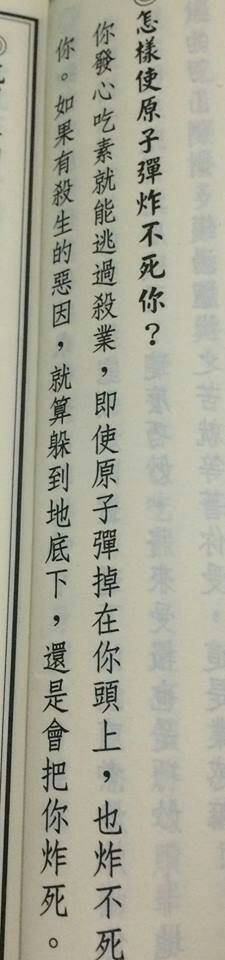 ◎怎樣使原子彈炸不死你？
你發心吃素就能逃過殺業，即使原子彈掉在你頭上，也炸不死
你。如果有殺生的惡因，就算躲到地底下，還是會把你炸死。